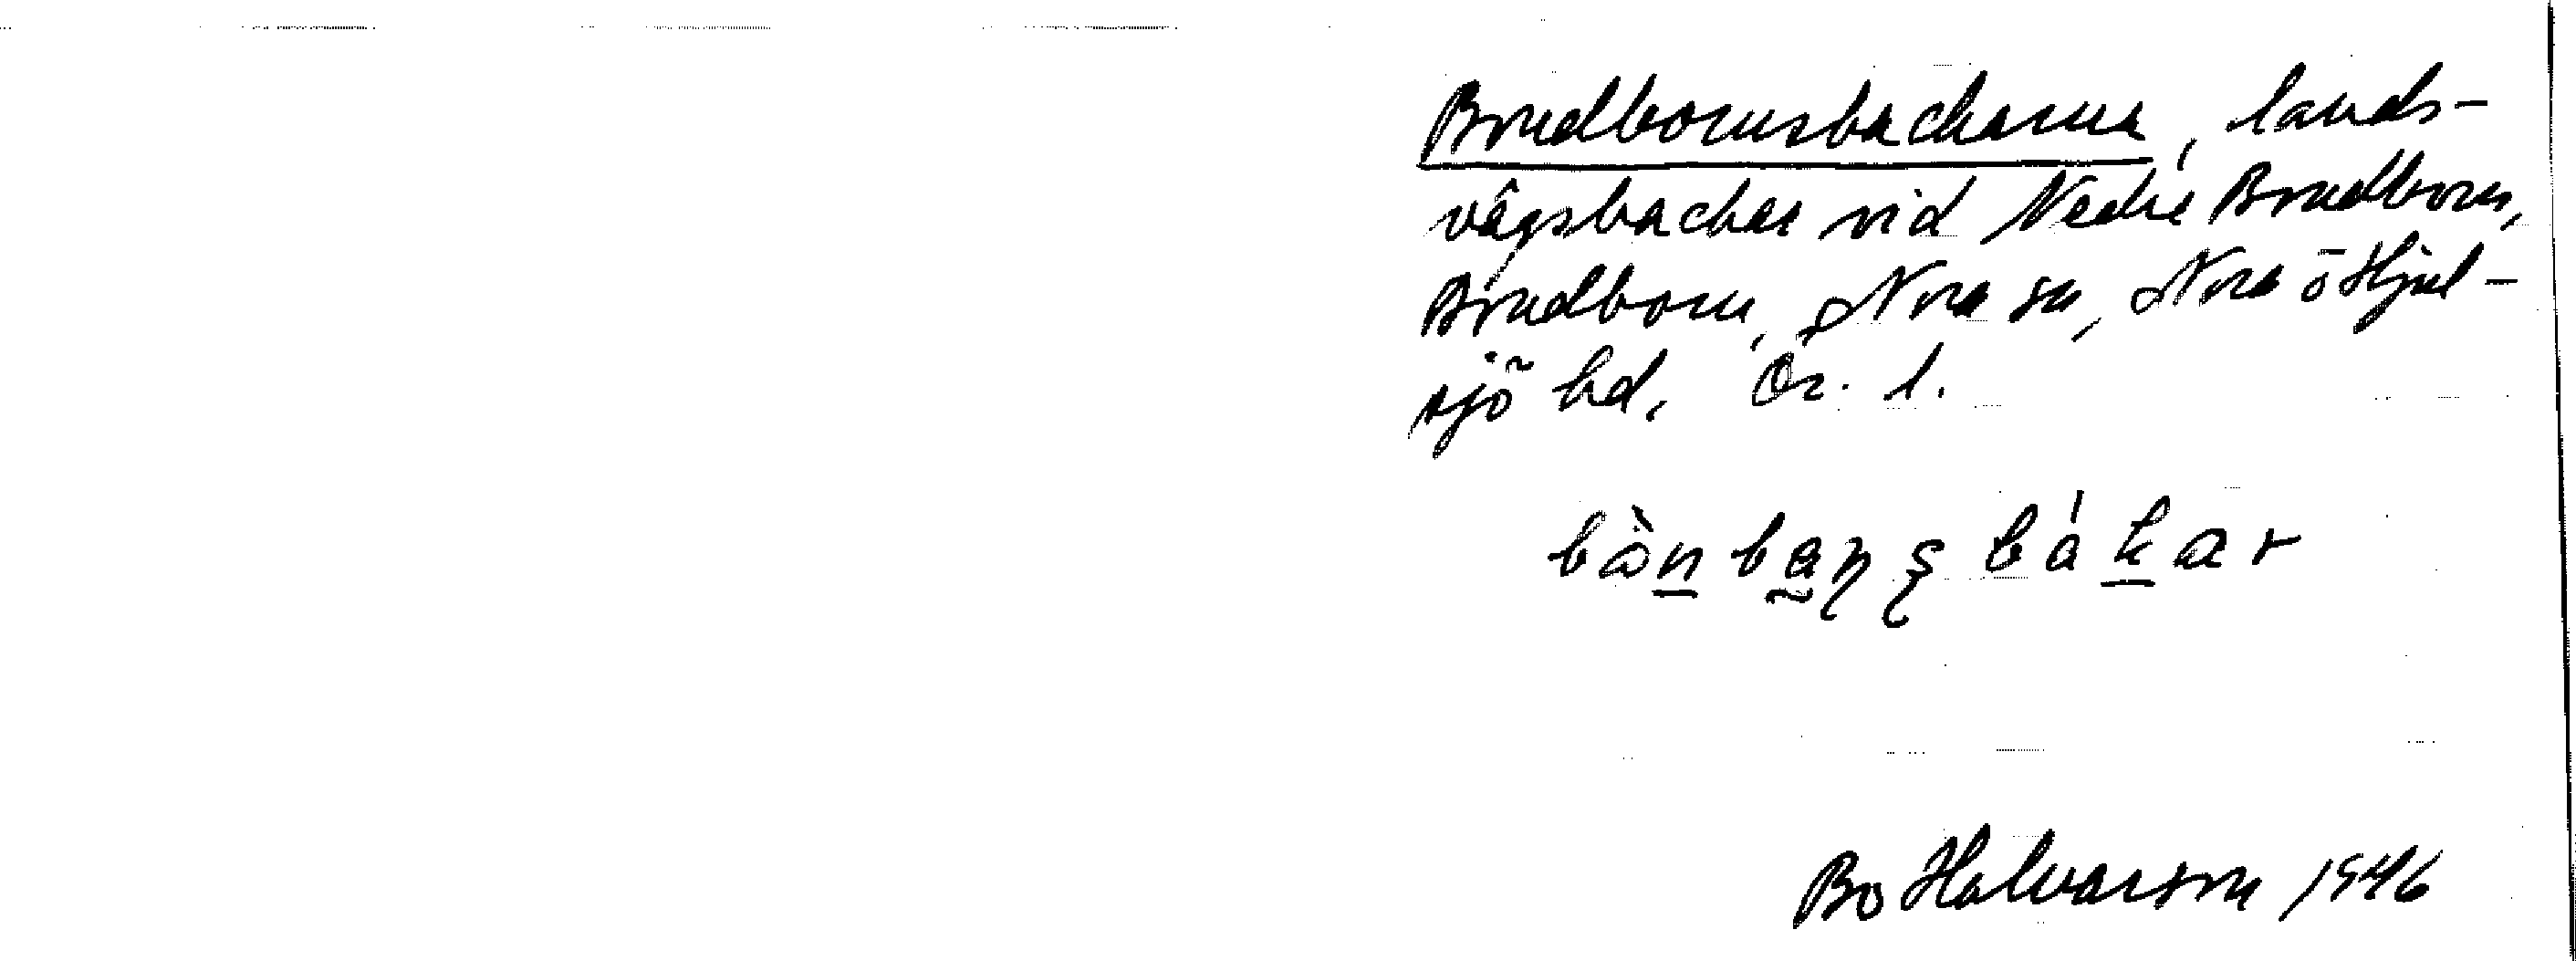 Bondbornsbackarna, lands-
vägsbackar vid Nedre Bondborn,
Bondborn, Nora sn, Nora o Hjul-
sjö bd, Ör. l.
bànbaņşbákar
Bo Halvarson 1946